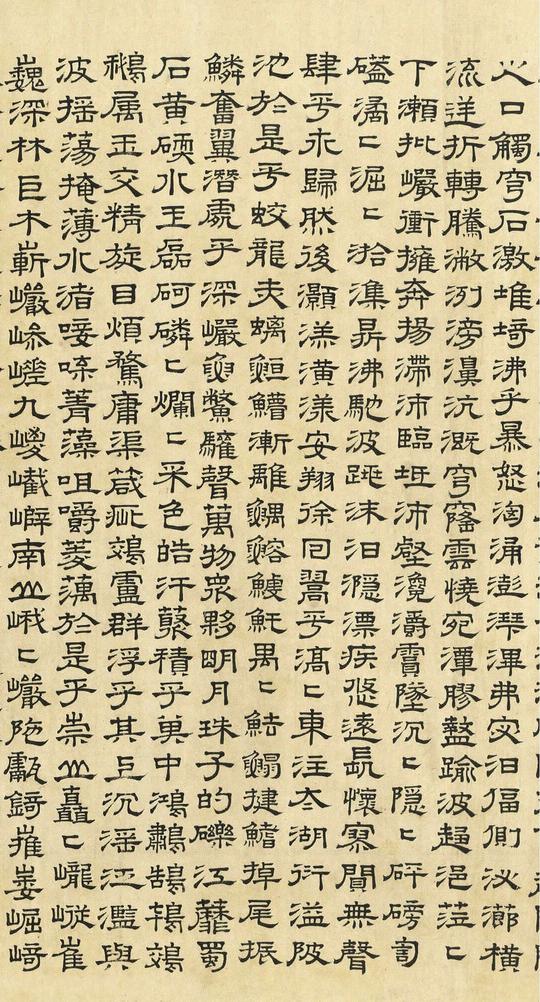 之口觸穹石激堆埼沸乎暴怒洶涌澎湃渾弗宓汨偪側泌瀄橫
流逆折轉騰潎洌滂濞沆溉穹窿雲橈宛潬膠盭踰波趨浥蒞〻
下瀨批巖衝擁奔揚滯沛臨坻沛壑瀺灂霣墜沉〻隱〻砰磅訇
磕潏〻淈〻湁潗鼎沸馳波跳沫汨濦漂疾悠遠長懷寥閴無聲
肆乎永歸然後灝溔潢漾安翔徐回翯乎滈〻東注太湖衍溢陂
池於是乎蛟龍赤螭䱭䲛漸離鰅鰫鰬魠禺〻魼鰨揵鰭掉尾振
鱗奮翼潛處乎深巖魚鱉驩聲萬物眾夥明月珠子的礫江蘼蜀
石黃碝水玉磊砢磷〻爛〻采色皓汗藂積乎其中鴻鷫鵠鴇
鵝属玉交精旋目煩鶩庸渠箴疵鵁盧群浮乎其上沉淫泛濫與
波搖蕩掩薄水渚唼喋菁藻咀嚼菱藕於是乎崇山矗〻巃嵸崔
巍深林巨木嶄巖嵾嵯九嵕巀嶭南山峨〻巖阤甗錡摧崣崛崎